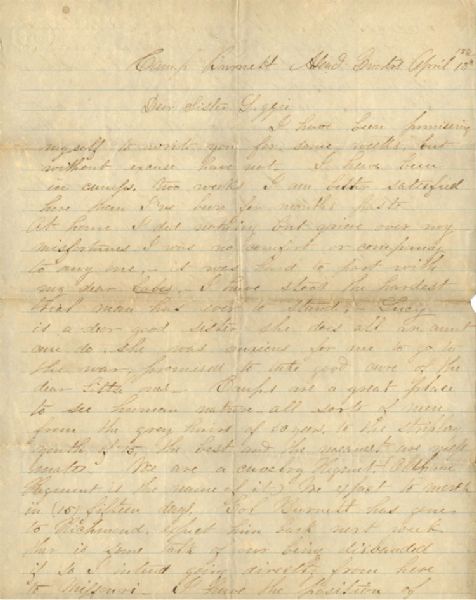 Camp Burnett Head Quarters April 12th
Dear Sister
I have been promising
myself to write you for some weeks, but
without excuse have not. I have been
in camps two weeks I am better satisfied
here than I've been for months past
At home I did nothing but grieve over my
misfortunes I was no comfort or company
to any one. it was hard to part with
my dear babes. I have stood the hardest
trial man has ever to stand. Lucy
is a dear good sister she does all an aunt
can do. she was anxious for me to go to
the war. promised to take good care of the
dear little ones. Camps are a great place
to see human nature all sorts of men
from the grey hairs of 50 years to the stripling
youth of 15, the best and the meanest are
We are a cavalry Regiment
Regiment is the name of it) We expect to march
in (15) fifteen days. Col Burnett has gone
to Richmond. expect him back next week
ther is some talk of our being disbanded
if so I intend going directly from here
to Missouri. I have the position of